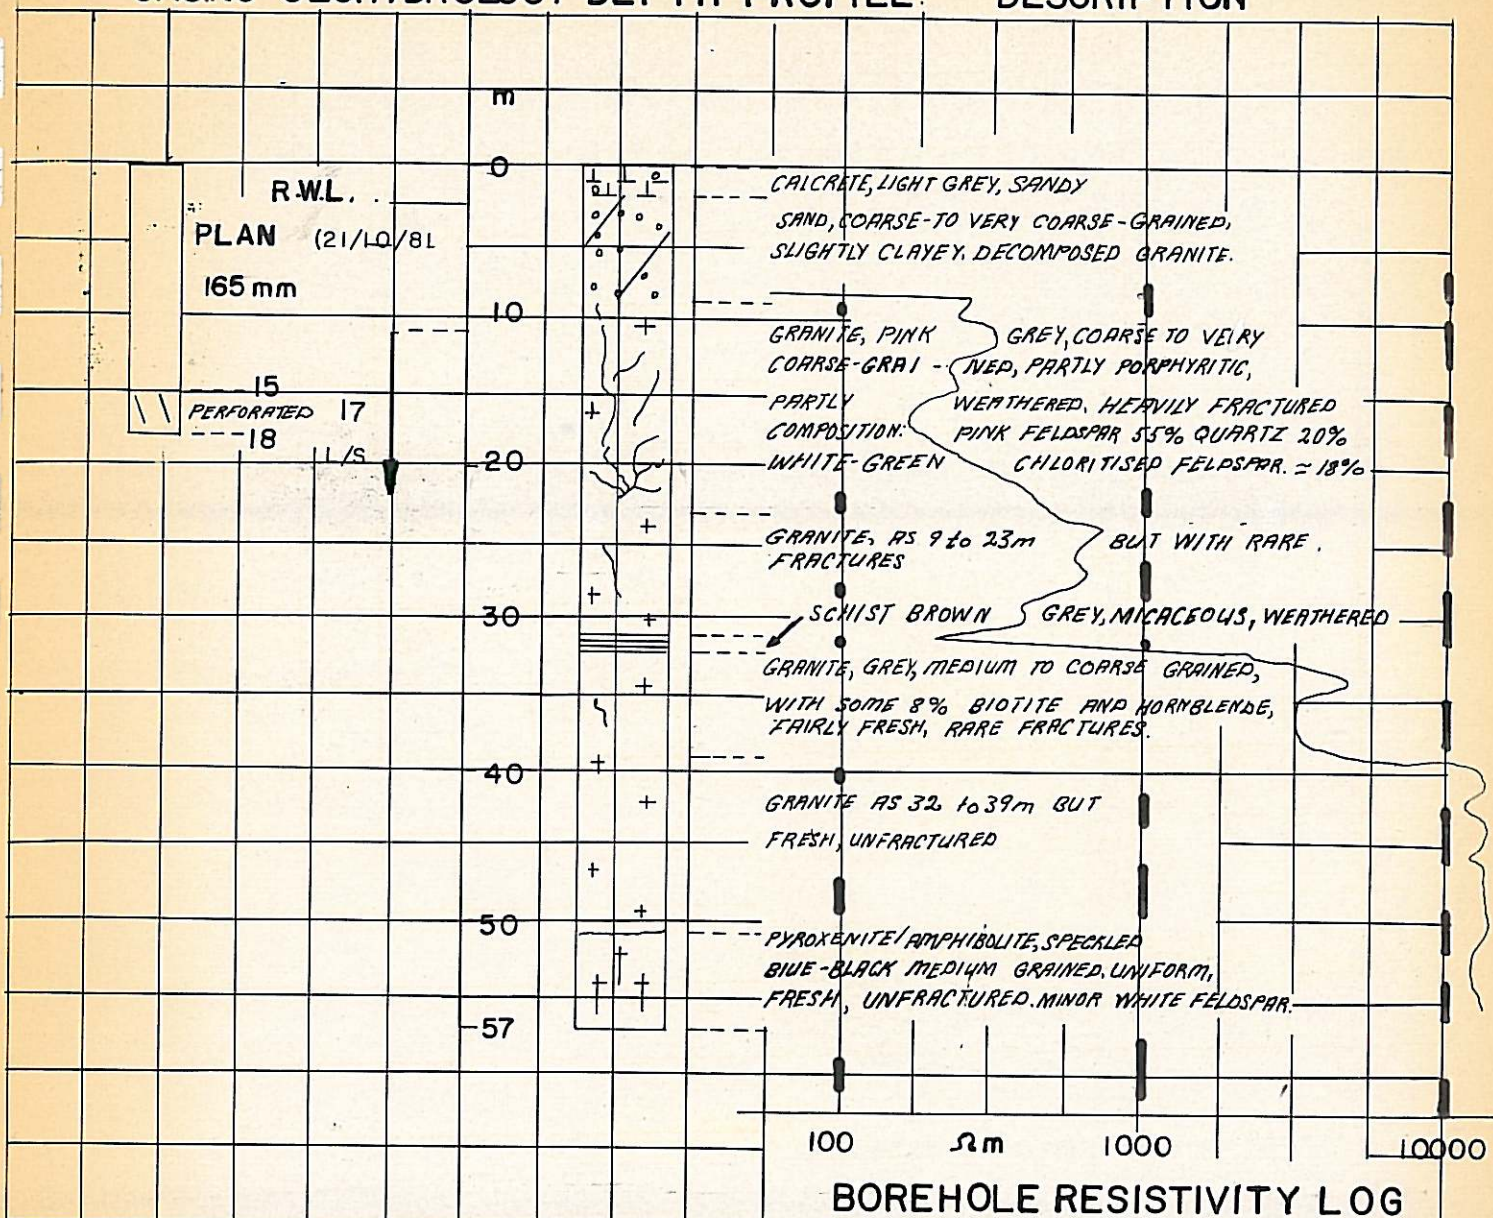 DEPTH PROFILE DESCRIPTION
m
0
R.W.L.
PLAN (21/10/81
165 mm
10
15
PERFORATED 17
18
L/S
20
30
40
50
57
CALCRETE, LIGHT GREY, SANDY
SAND, COARSE-TO VERY COARSE-GRAINED,
SLIGHTLY CLAYEY. DECOMPOSED GRANITE.
GRANITE, PINK GREY, COARSE TO VEIRY
COARSE-GRAI - NED, PARTLY PORPHYRITIC,
PARTLY WEATHERED, HEAVILY FRACTURED
COMPOSITION: PINK FELDSPAR 55% QUARTZ 20%
WHITE-GREEN CHLORITISED FELDSPAR. ≃ 18%
GRANITE, AS 9 to 23m BUT WITH RARE.
FRACTURES
SCHIST BROWN GREY, MICACEOUS, WEATHERED
GRANITE, GREY, MEDIUM TO COARSE GRAINED,
WITH SOME 8% BIOTITE AND HORNBLENDE,
FAIRLY FRESH, RARE FRACTURES.
GRANITE AS 32 to 39m BUT
FRESH, UNFRACTURED
PYROXENITE/AMPHIBOLITE, SPECKLED
BLUE-BLACK MEDIUM GRAINED, UNIFORM,
FRESH, UNFRACTURED. MINOR WHITE FELDSPAR.
100 Ωm 1000 10000
BOREHOLE RESISTIVITY LOG